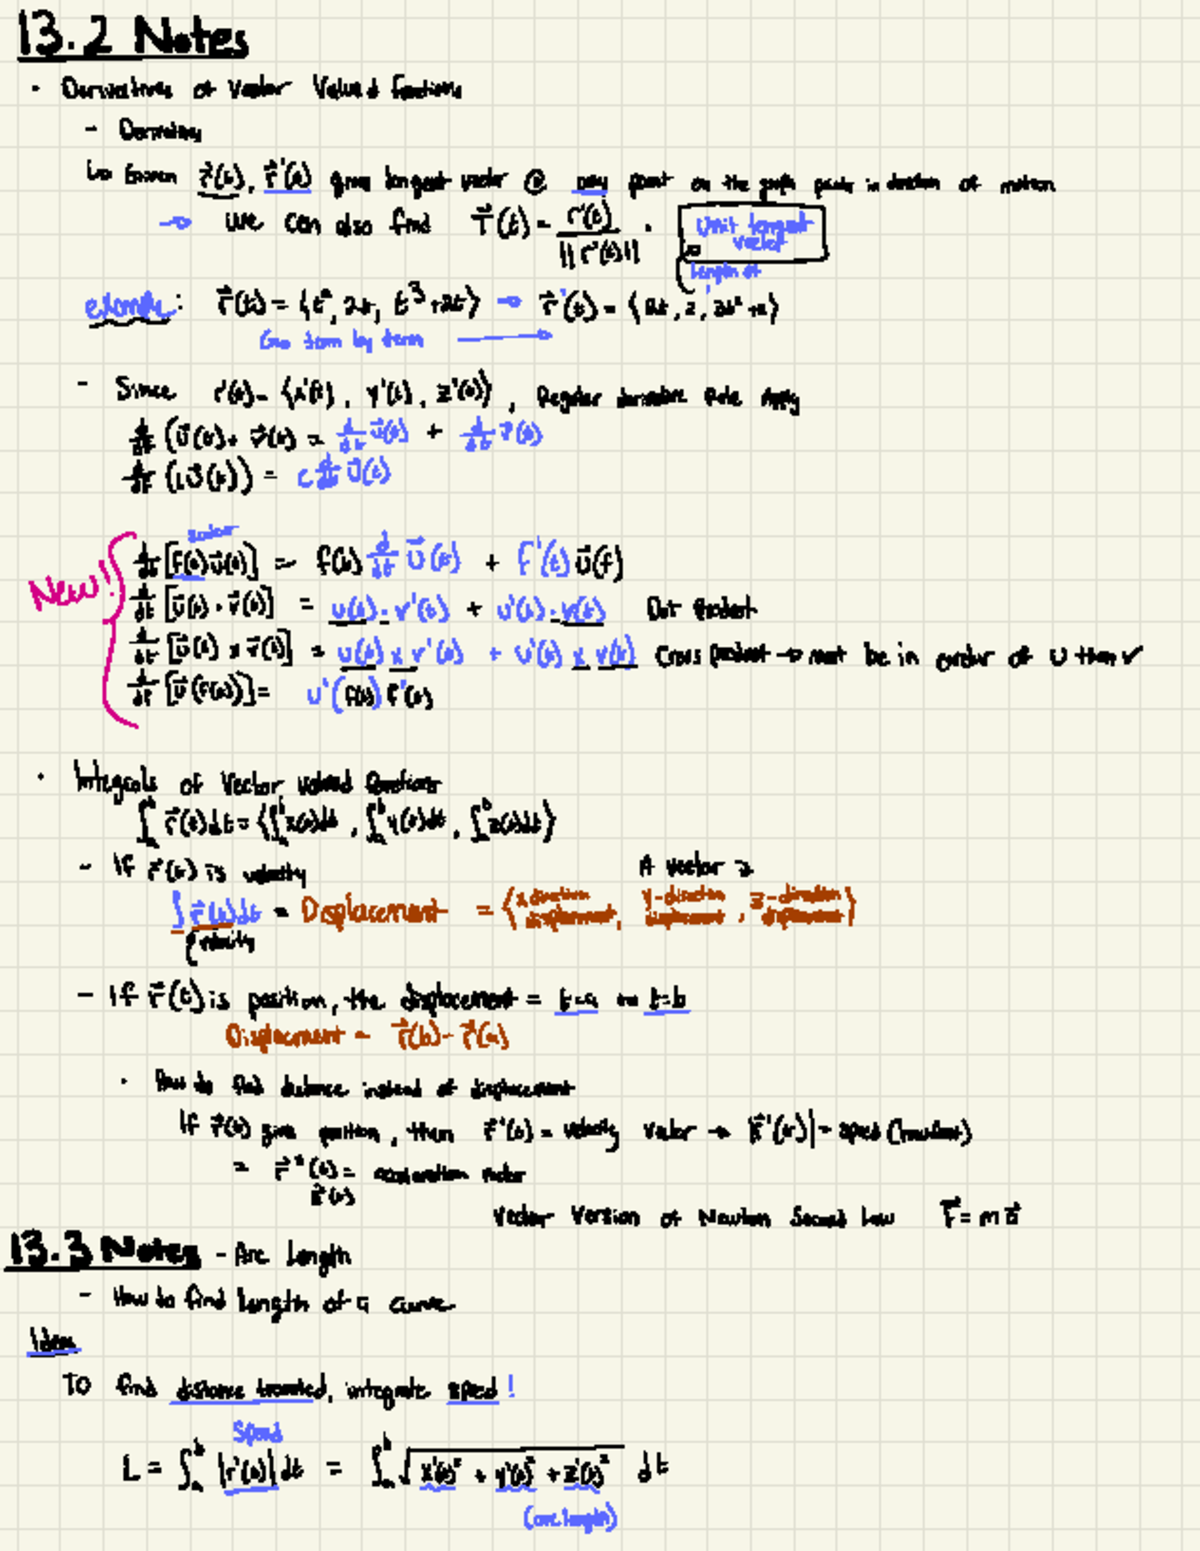 13.2 Notes
• Derivatives of Vector Valued functions
- Derivatives
↳ Given r⃗(t), r⃗'(t) gives tangent vector @ any point on the graph points in direction of motion
→ We can also find T⃗(t) = r'(t) / ||r'(t)|| . Unit tangent vector
Length of
example: r⃗(t) = ⟨t², 2t, t³+2t⟩ → r⃗'(t) = ⟨2t, 2, 3t²+2⟩
Go term by term →
- Since r'(t) = ⟨x'(t), y'(t), z'(t)⟩, Regular derivative Rule Apply
d/dt (u⃗(t) + v⃗(t) = d/dt u⃗(t) + d/dt v⃗(t)
d/dt (cu⃗(t)) = c d/dt u⃗(t)
scalar
New! d/dt [f(t)u⃗(t)] = f(t) d/dt u⃗(t) + f'(t) u⃗(t)
d/dt [u⃗(t) · v⃗(t)] = u(t) · v'(t) + u'(t) · v(t) Dot Product
d/dt [u⃗(t) x v⃗(t)] = u(t) x v'(t) + u'(t) x v(t) Cross product → must be in order of u then v
d/dt [u⃗(f(t))] = u'(f(t)) f'(t)
• Integrals of Vector valued functions
∫ₐᵇ r⃗(t)dt = ⟨∫ₐᵇ x(t)dt, ∫ₐᵇ y(t)dt, ∫ₐᵇ z(t)dt⟩
- If r⃗(t) is velocity A vector
∫ r⃗(t)dt = Displacement = ⟨x direction displacement, y-direction displacement, z-direction displacement⟩
velocity
- If r⃗(t) is position, the displacement = t=a t=b
Displacement = r⃗(b) - r⃗(a)
• How to find distance instead of displacement
If r⃗(t) gives position, then r⃗'(t) = velocity vector → |r⃗'(t)| = speed
= r⃗"(t) = acceleration vector
Vector Version of Newton Second Law F⃗ = ma⃗
13.3 Notes - Arc Length
- How to find length of a curve
Idea
To find distance traveled, integrate speed!
Speed
L = ∫ₐᵇ |r'(t)| dt = ∫ₐᵇ √(x'(t)² + y'(t)² + z'(t)²) dt
(arc length)